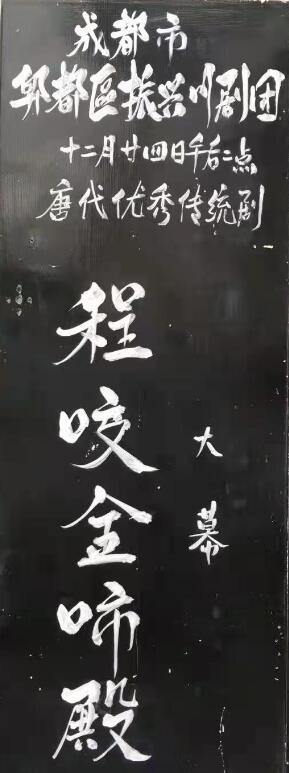 成都市
郫都區振兴川剧团
十二月廿四日午后二点
唐代优秀传统剧
程咬金啼殿
大幕